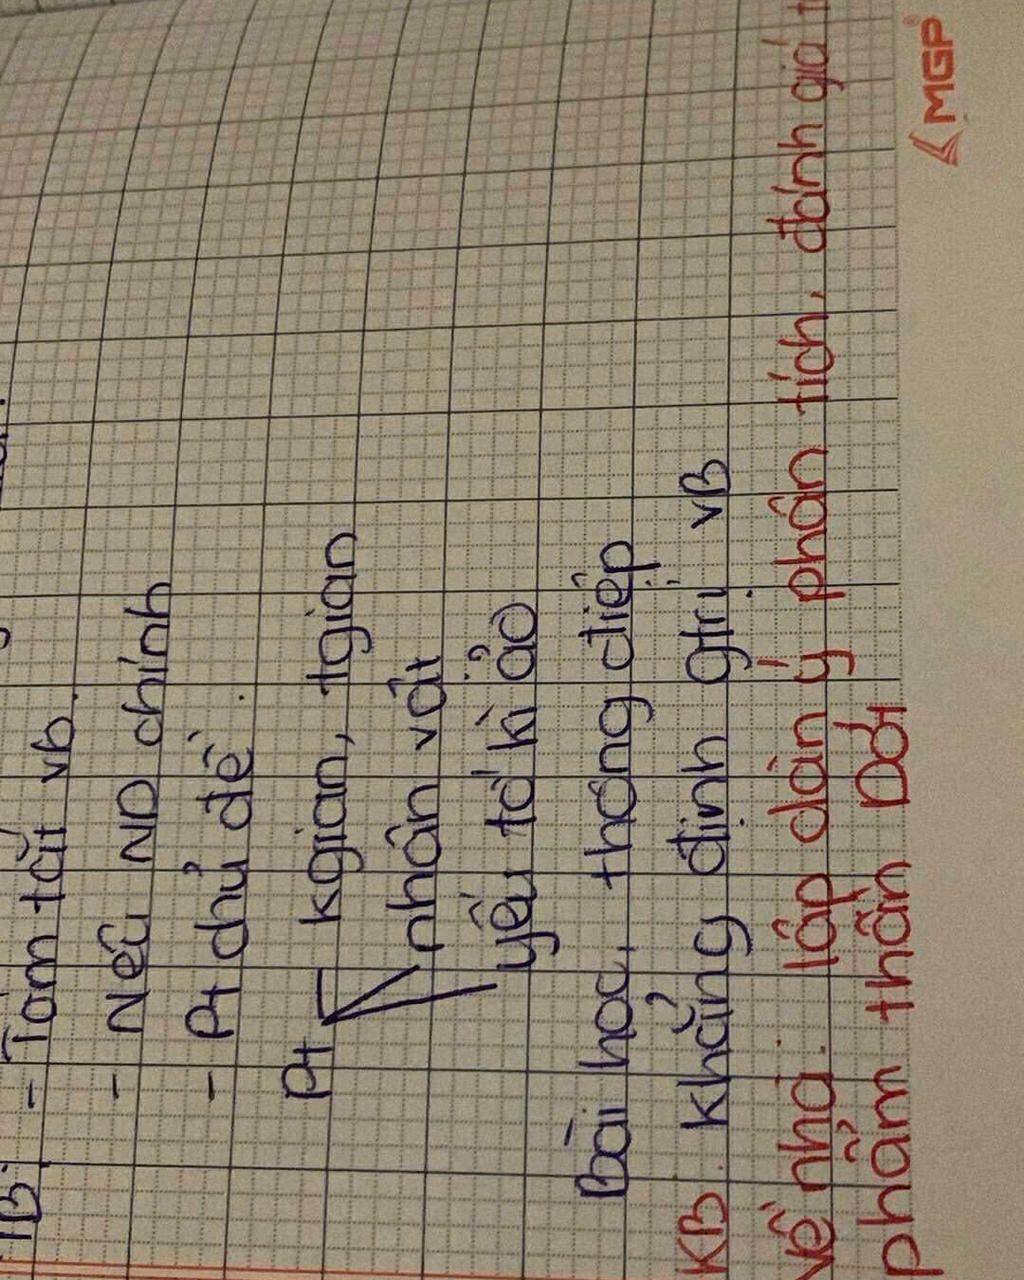 TB: - Tóm tắt vb.
- Nếu ND chính
- Pt chủ đề.
Pt kgian, tgian
nhân vật
yếu tố kì ảo
Bài học, thông điệp
KB. Khẳng định gtrị VB
Về nhà: lập dàn ý phân tích, đánh giá
phẩm thần Dơi
MGP